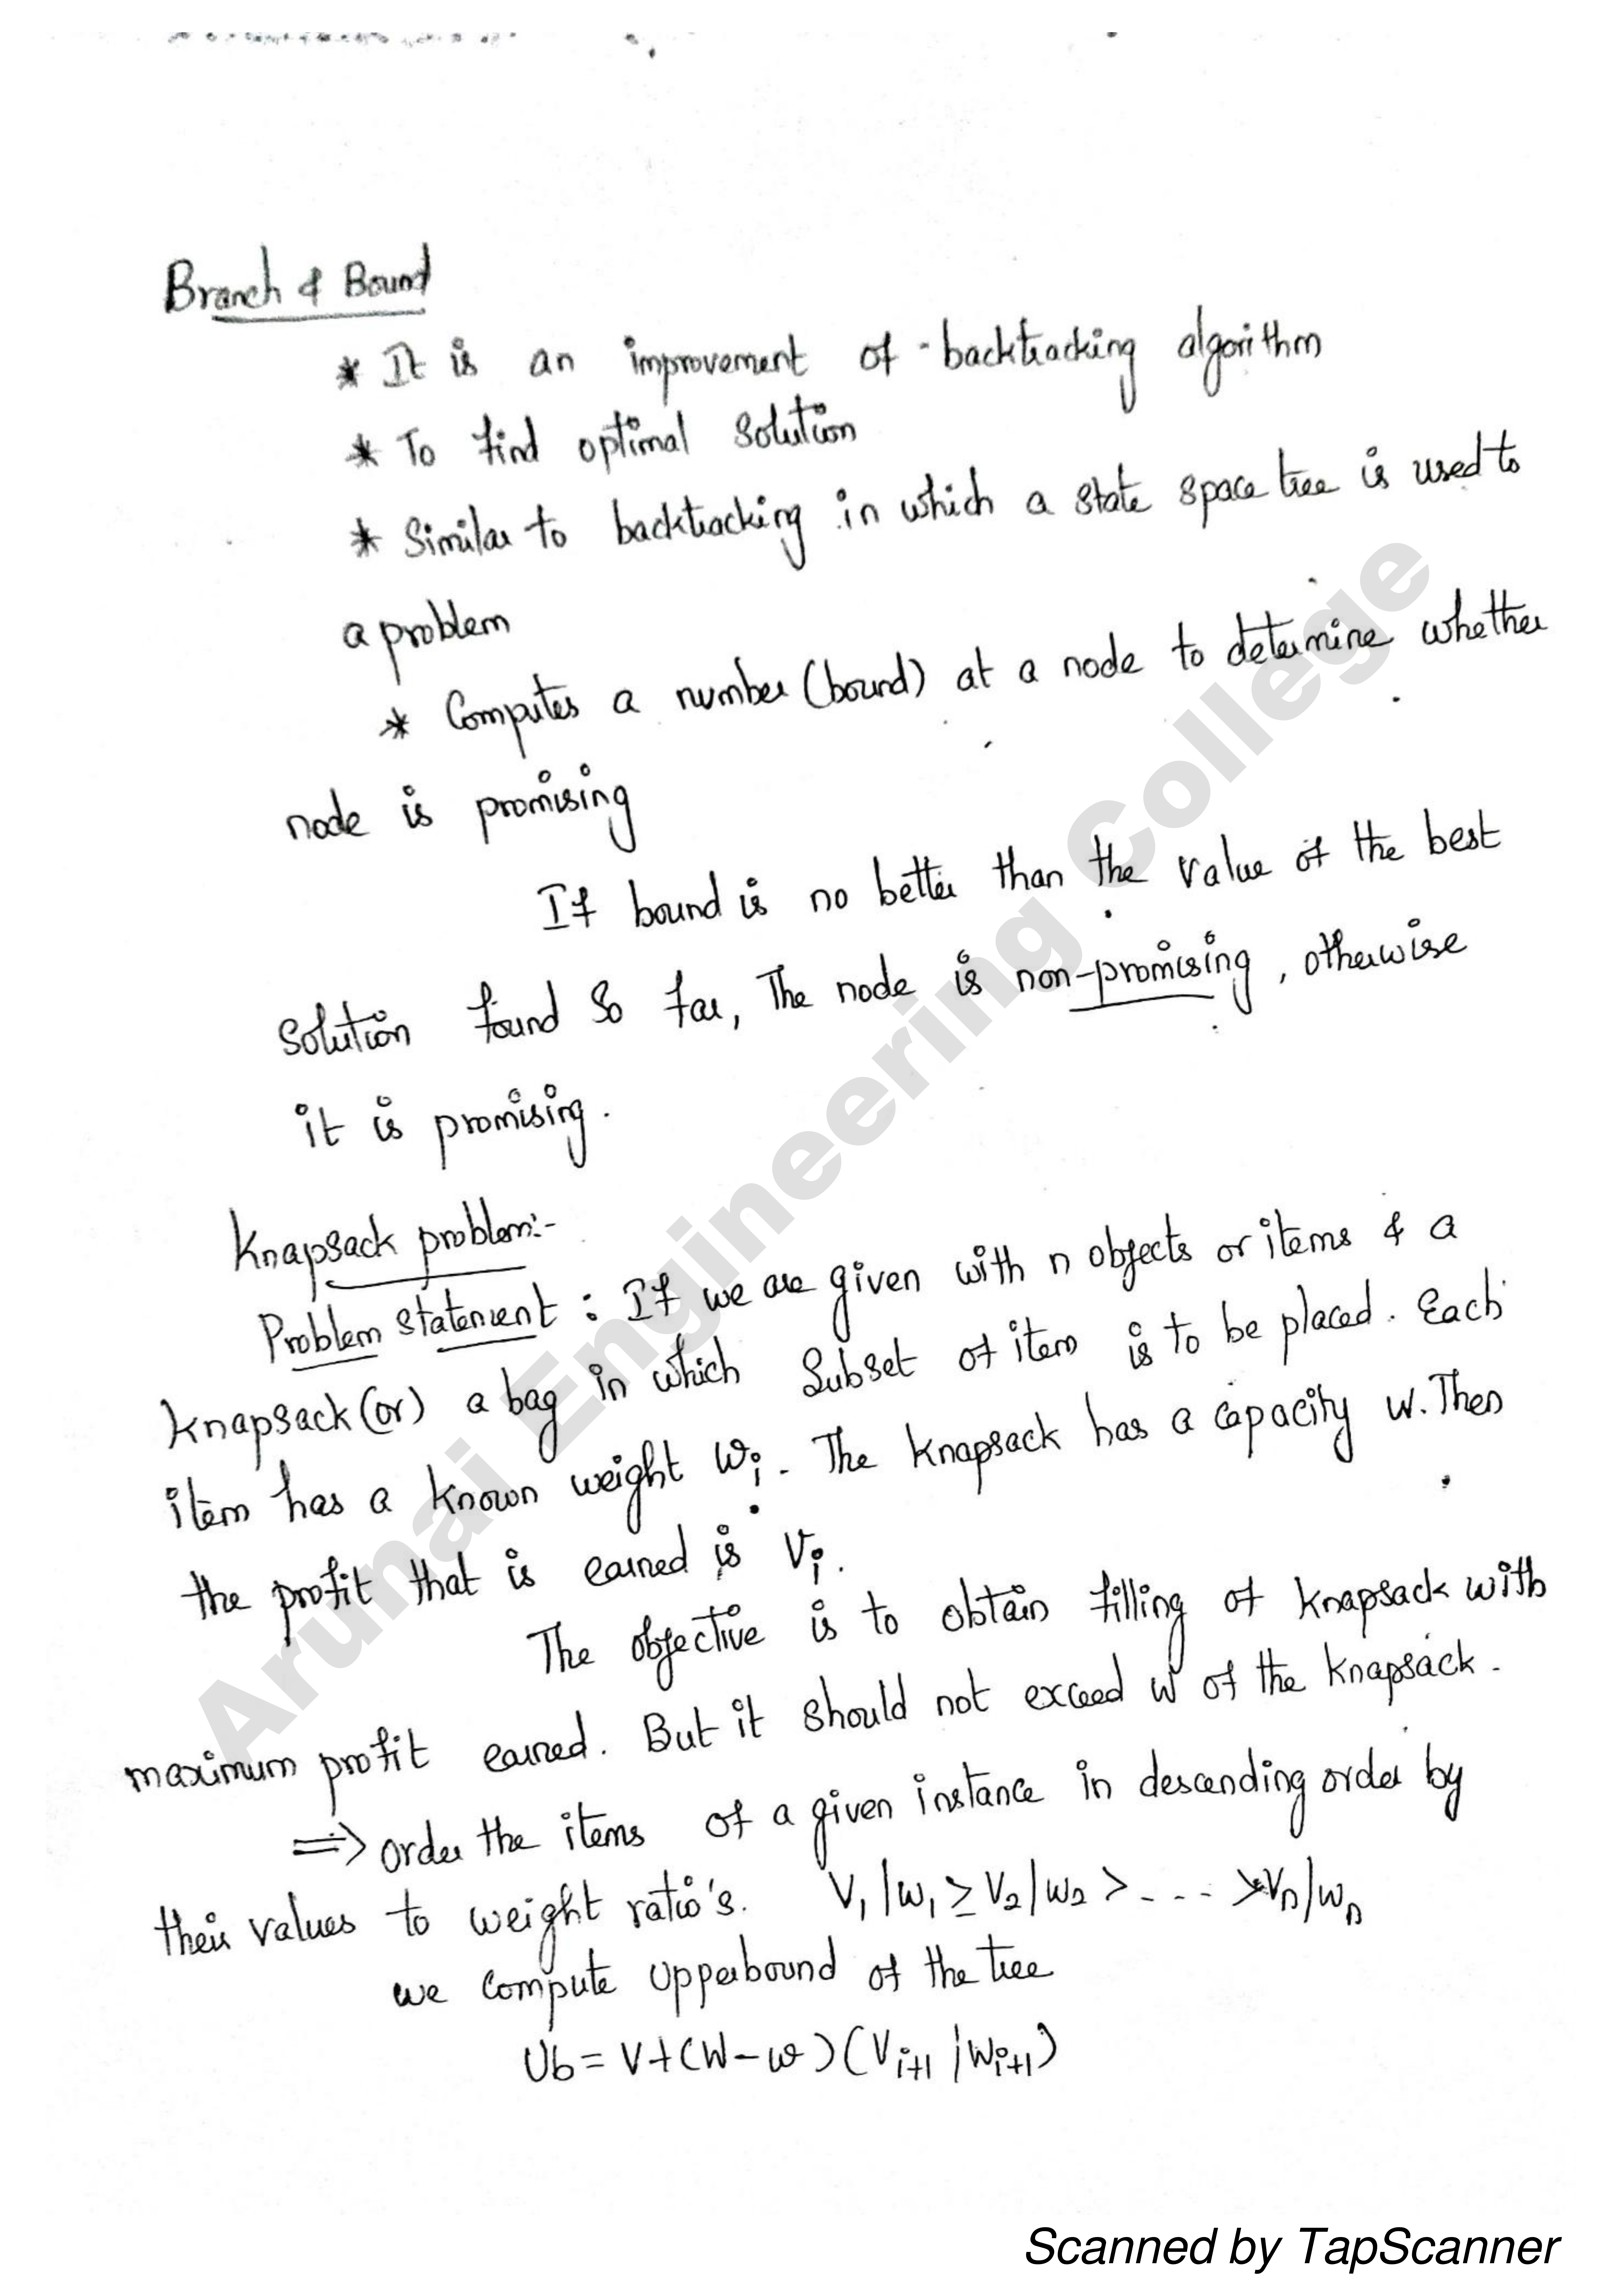 Branch & Bound
* It is an improvement of backtracking algorithm
* To find optimal solution
* Similar to backtracking in which a state space tree is used to
a problem
* Computes a number (bound) at a node to determine whether
node is promising
If bound is no better than the value of the best
solution found so far, The node is non-promising, otherwise
it is promising.
Knapsack problem:-
Problem statement : If we are given with n objects or items & a
knapsack (or) a bag in which subset of item is to be placed. Each
item has a known weight wi. The knapsack has a capacity W. Then
the profit that is earned is Vi.
The objective is to obtain filling of knapsack with
maximum profit earned. But it should not exceed W of the knapsack.
=> order the items of a given instance in descending order by
their values to weight ratio's. V1/w1 ≥ V2/w2 > - - - > Vn/wn
we compute upperbound of the tree
Ub = V+(W-w)(Vi+1/Wi+1)
Arunai Engineering College
Scanned by TapScanner